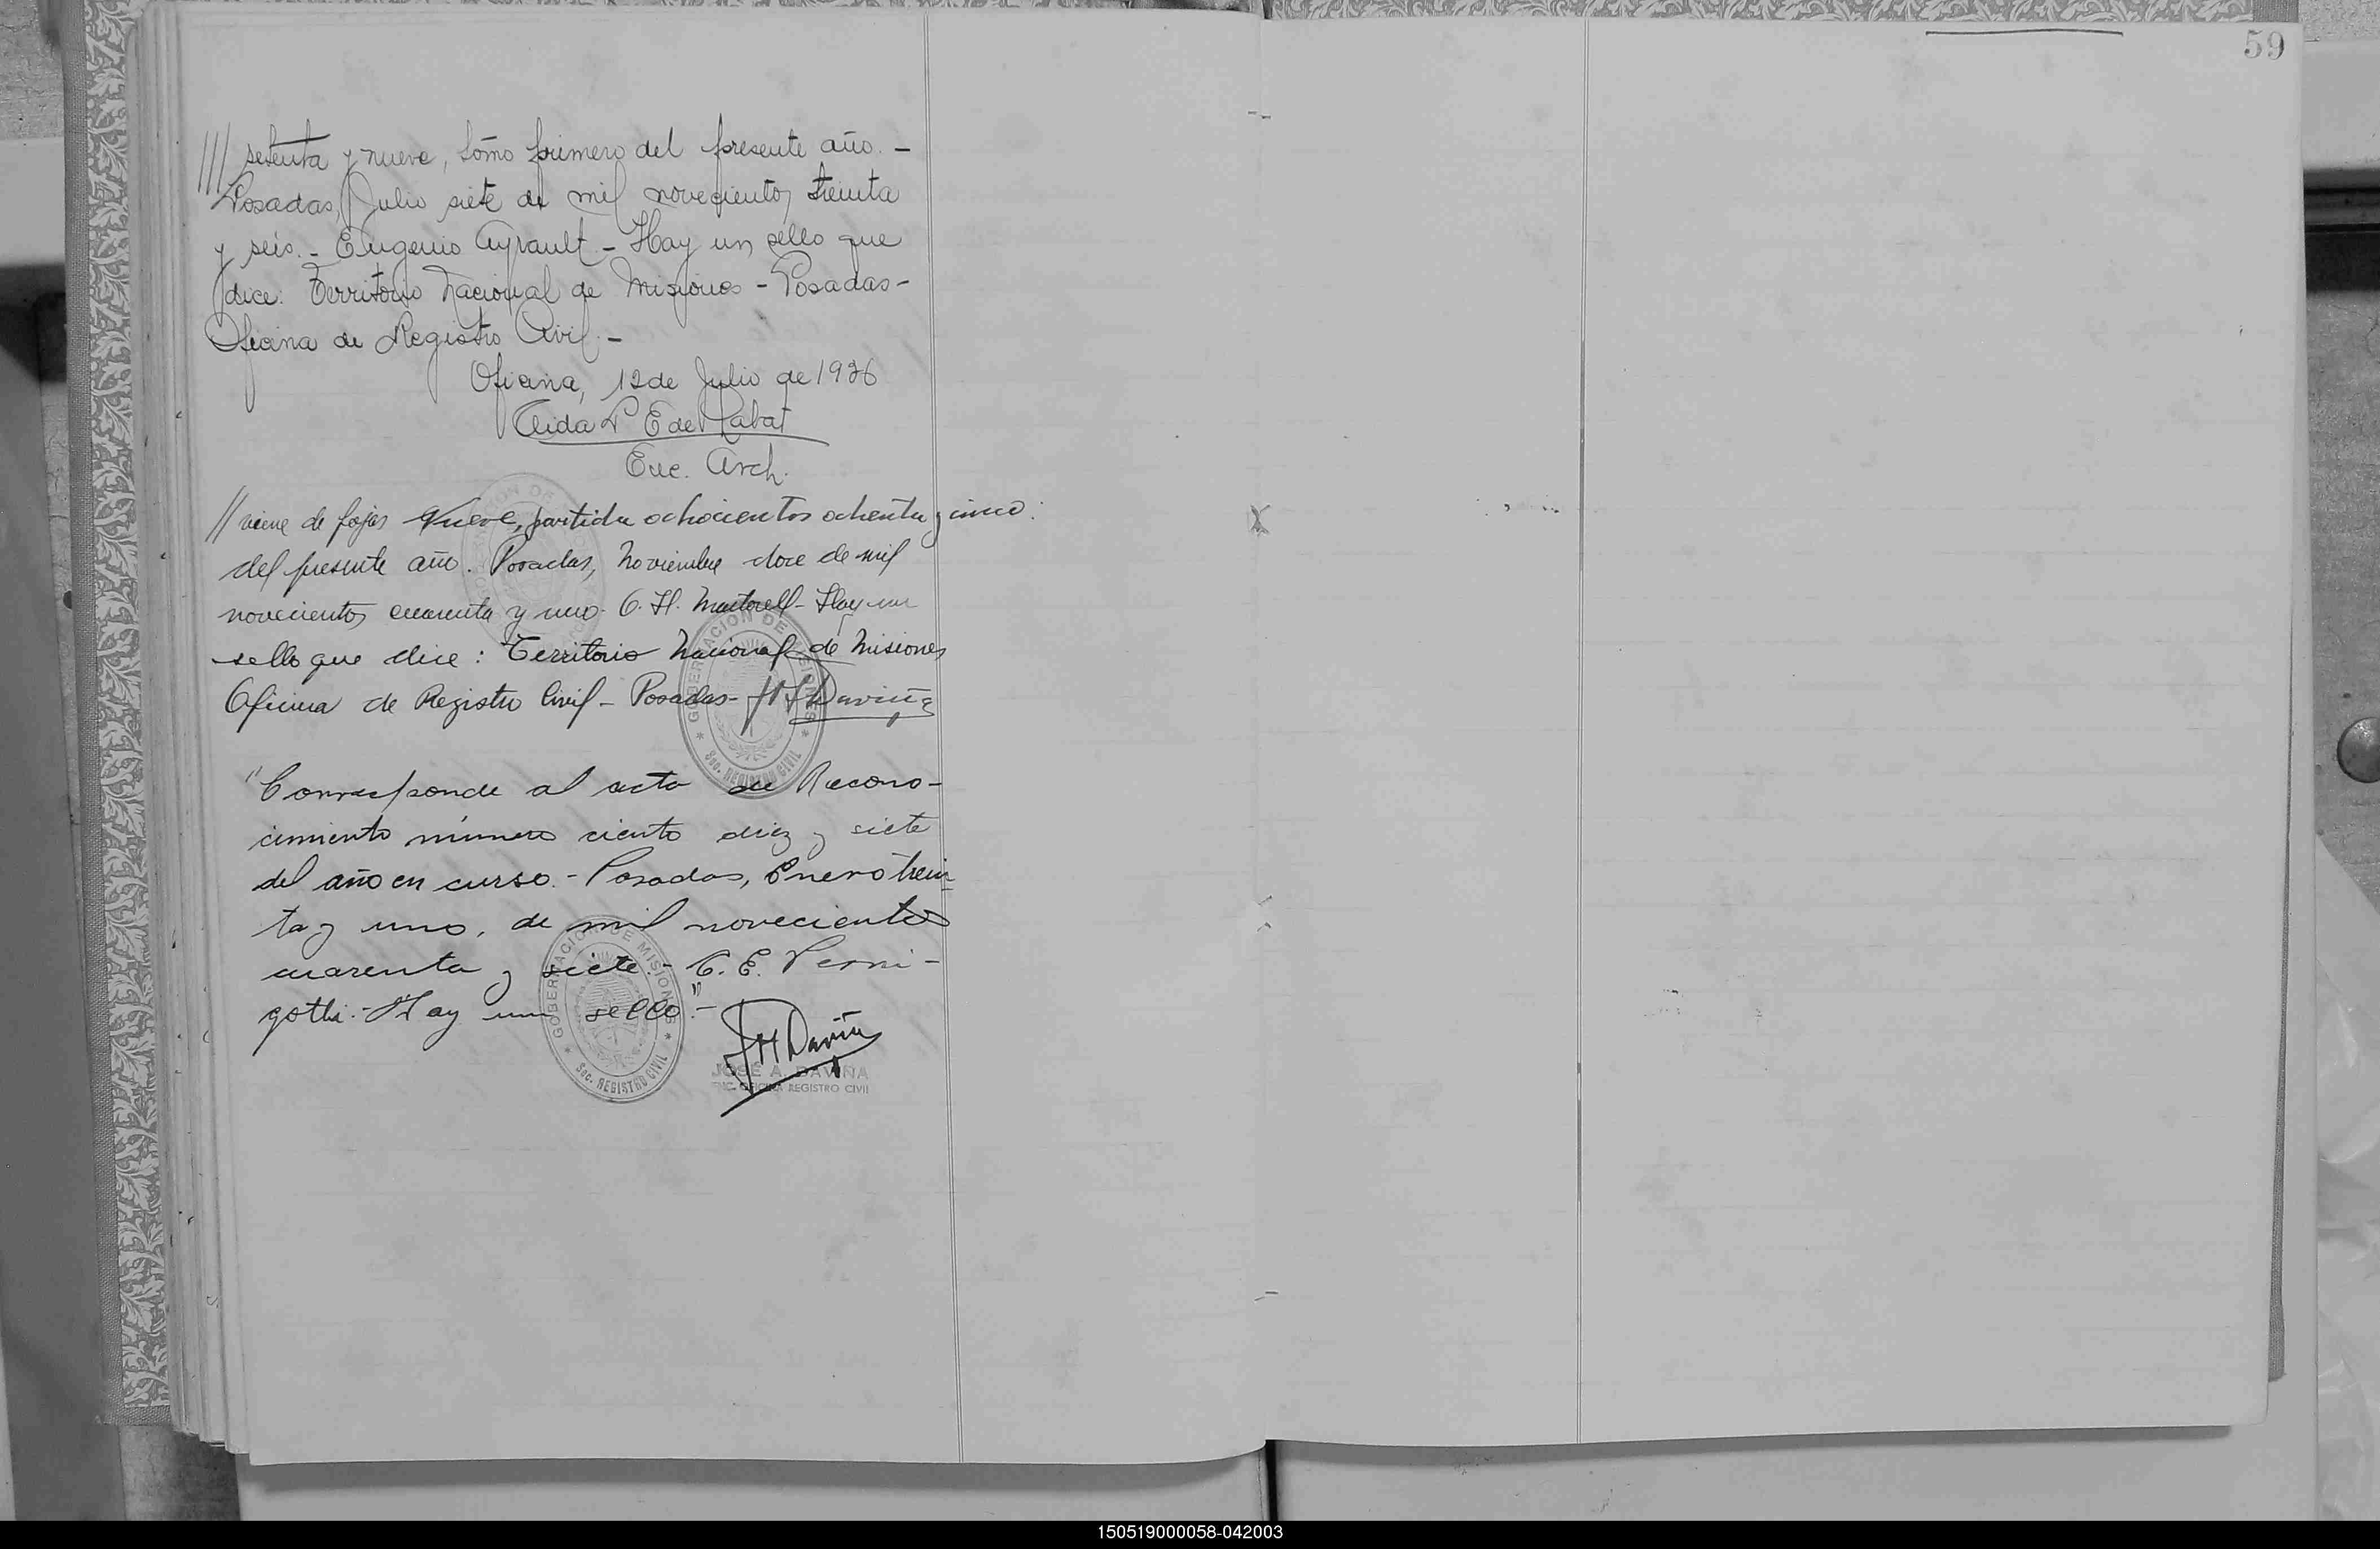 59
/// setenta y nueve, tomo primero del presente año. -
Posadas, Julio siete de mil novecientos treinta
y seis. - Eugenio Ayrault - Hay un sello que
dice: Territorio Nacional de Misiones - Posadas -
Oficina de Registro Civil. -
Oficina, 12 de Julio de 1936
Aida P E de Labat
Enc. Arch.
// viene de fojas nueve, partida ochocientos ochenta y cinco.
del presente año. Posadas, Noviembre doce de mil
novecientos cuarenta y uno. C. H. Martorell - Hay un
sello que dice: Territorio Nacional de Misiones
Oficina de Registro Civil - Posadas - Daviña
GOBERNACION DE MISIONES
Sec. REGISTRO CIVIL
"Corresponde al acta de Recono-
cimiento número ciento diez y siete
del año en curso. - Posadas, Enero trein-
ta y uno, de mil novecientos
cuarenta y siete. - C. E. Verni-
gotti. - Hay un sello." -
GOBERNACION DE MISIONES
Sec. REGISTRO CIVIL
Daviña
JOSÉ A. DAVIÑA
ENC. OFICINA REGISTRO CIVIL
150519000058-042003